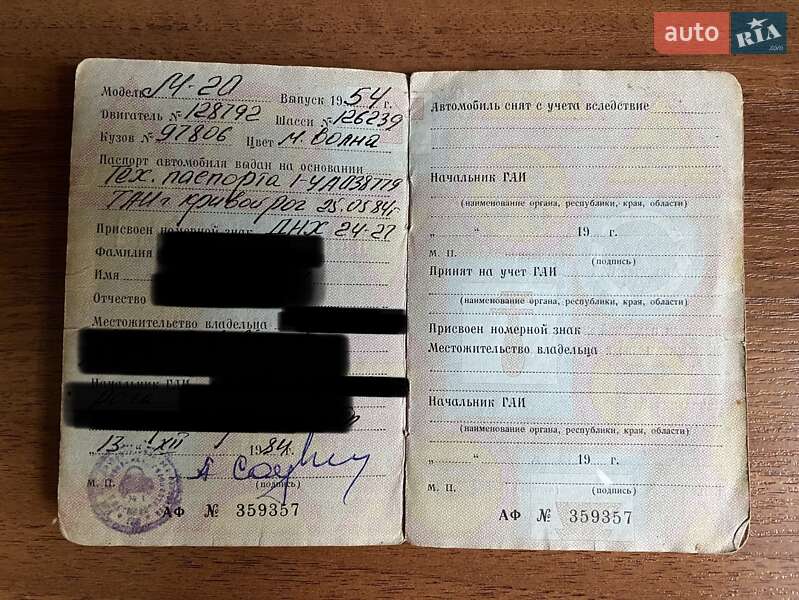 auto RIA .com
Модель М-20 Выпуск 1954 г.
Двигатель № 128792 Шасси № 126239
Кузов № 97806 Цвет м. Волна
Паспорт автомобиля выдан на основании
Тех. паспорта 1-УЛ 038779
ГАИ г Кривой рог 25.05 84г
Присвоен номерной знак ДНХ 24-27
Фамилия
Имя
Отчество
Местожительство владельца
Начальник ГАИ
„13 XII 1984 г.
М. П. (подпись)
АФ № 359357
Автомобиль снят с учета вследствие
Начальник ГАИ
(наименование органа, республики, края, области)
„ “ 19 г.
М. П. (подпись)
Принят на учет ГАИ
(наименование органа, республики, края, области)
Присвоен номерной знак
Местожительство владельца
Начальник ГАИ
(наименование органа, республики, края, области)
„ “ 19 г.
М. П. (подпись)
АФ № 359357